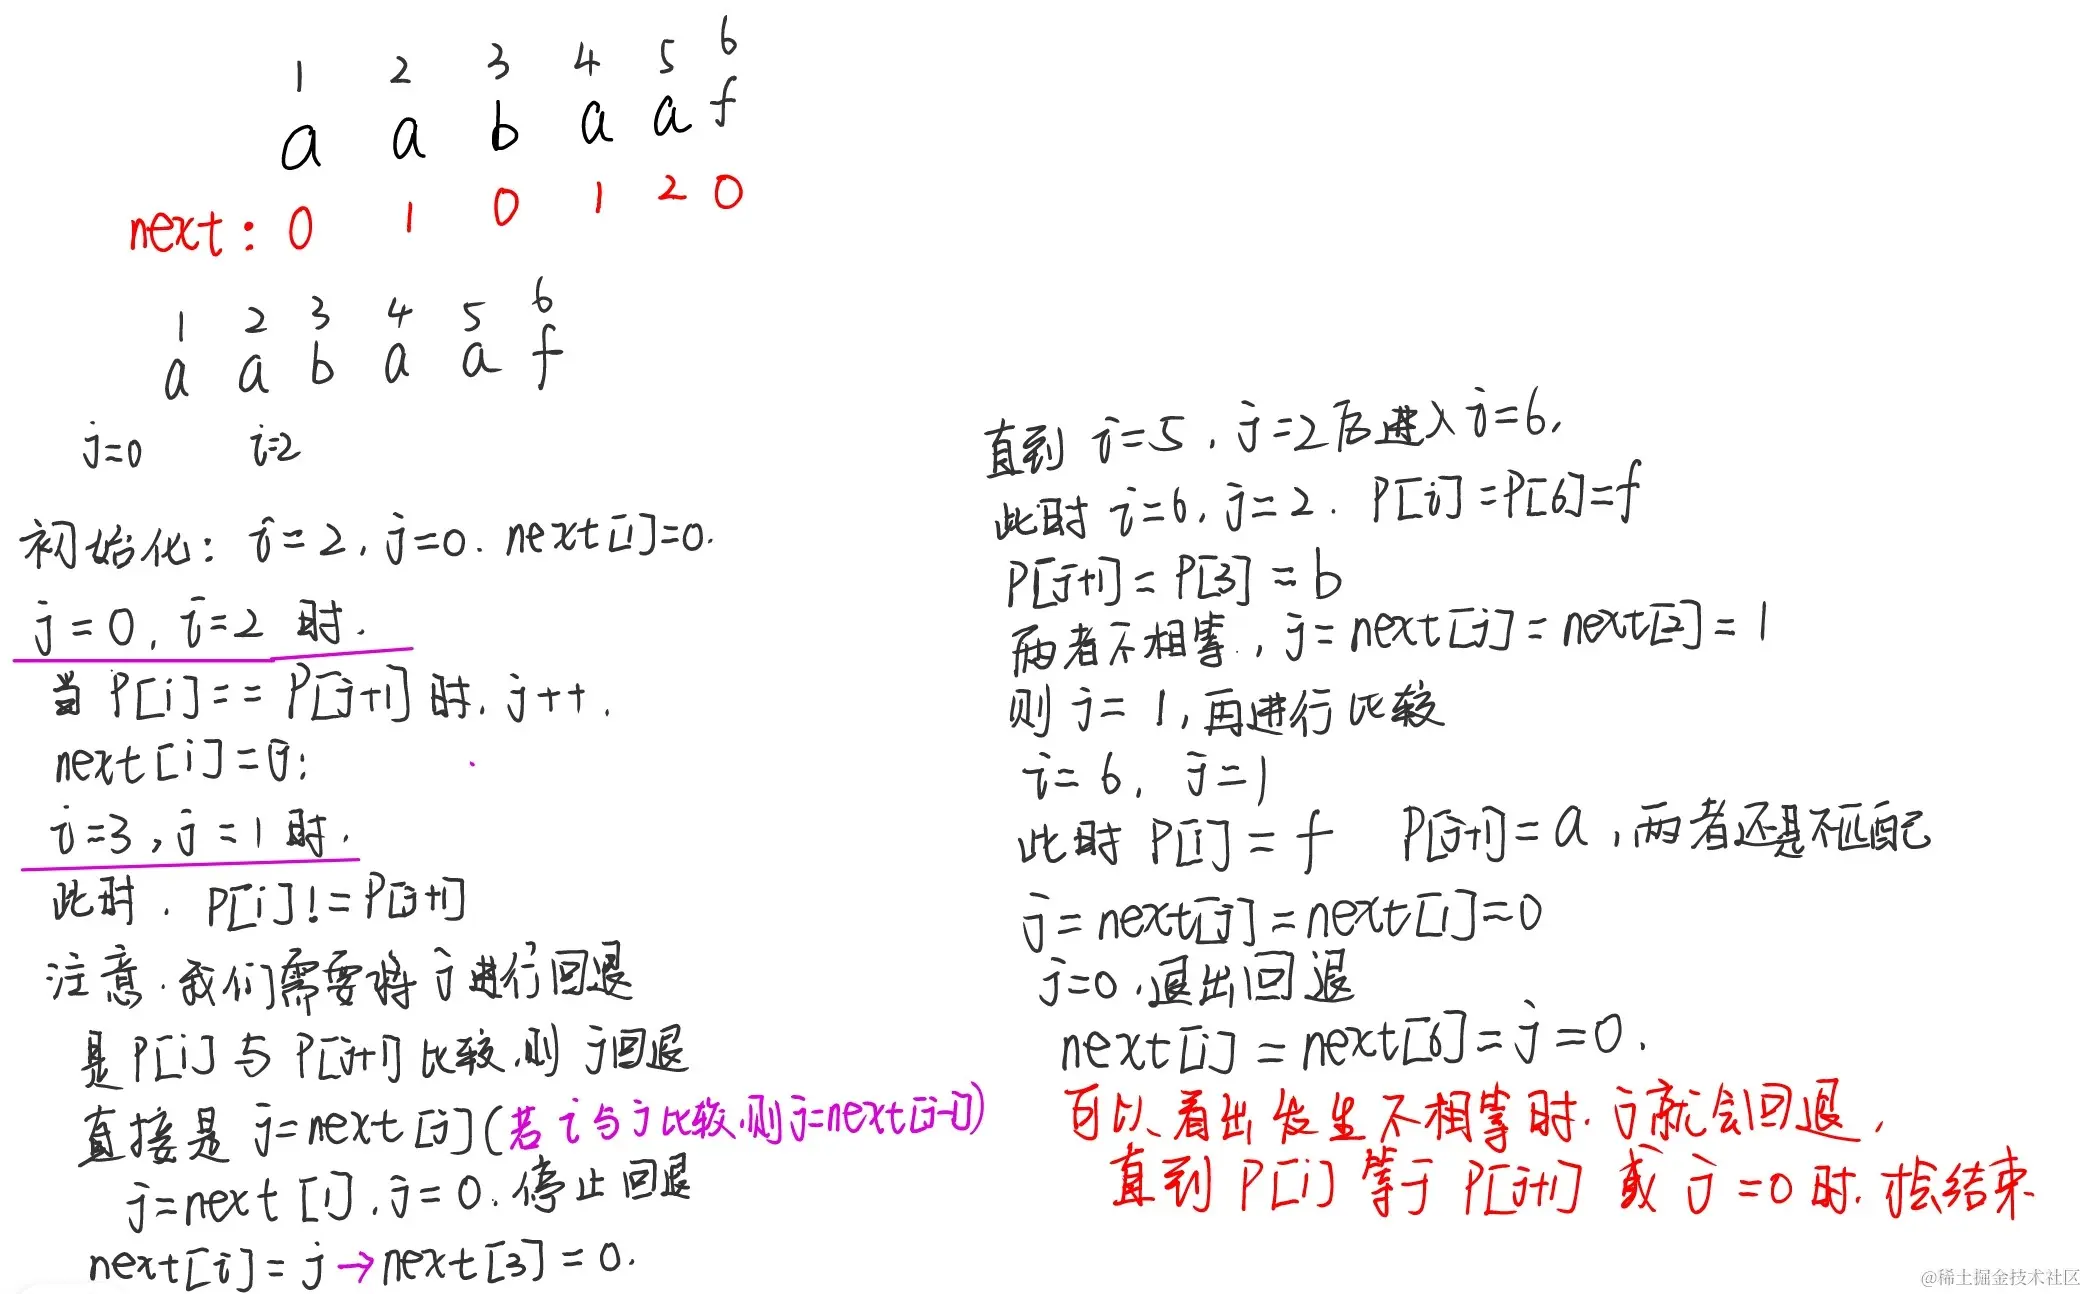 1 2 3 4 5 6
a a b a a f
next: 0 1 0 1 2 0
1 2 3 4 5 6
a a b a a f
j=0 i=2
初始化: i=2, j=0. next[1]=0.
j=0, i=2 时.
当 P[i]== P[j+1] 时. j++.
next[i]=j;
i=3, j=1 时.
此时. P[i]!=P[j+1]
注意.我们需要将 j 进行回退
是 P[i] 与 P[j+1] 比较.则 j回退
直接是 j=next[j] (若 i 与 j 比较.则 j=next[j-1])
j=next[1]. j=0. 停止回退
next[i]=j→next[3]=0.
直到 i=5, j=2后进入 i=6,
此时 i=6, j=2. P[i]=P[6]=f
P[j+1]=P[3]=b
两者不相等., j=next[j]=next[2]=1
则 j=1,再进行比较
i=6, j=1
此时 P[i]=f P[j+1]=a,两者还是不匹配
j=next[j]=next[1]=0
j=0.退出回退
next[i]=next[6]=j=0.
可以看出发生不相等时. j就会回退,
直到 P[i] 等于 P[j+1] 或 j=0 时.才会结束.
@稀土掘金技术社区